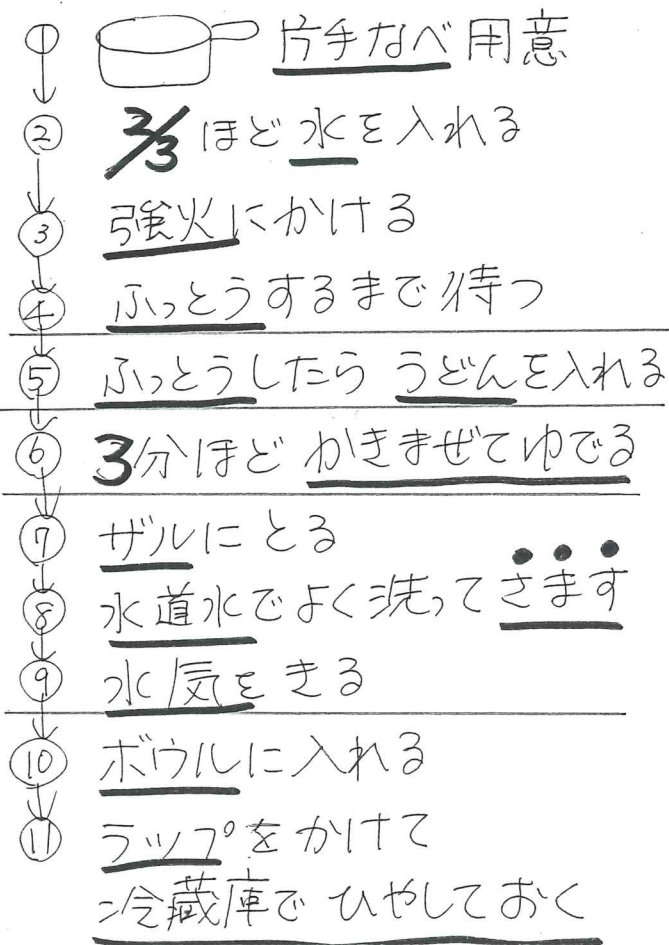 ① 片手なべ用意
② 2/3 ほど水を入れる
③ 強火にかける
④ ふっとうするまで待つ
⑤ ふっとうしたら うどんを入れる
⑥ 3分ほど かきまぜてゆでる
⑦ ザルにとる
⑧ 水道水でよく洗ってさます
⑨ 水気をきる
⑩ ボウルに入れる
⑪ ラップをかけて
冷蔵庫で ひやしておく